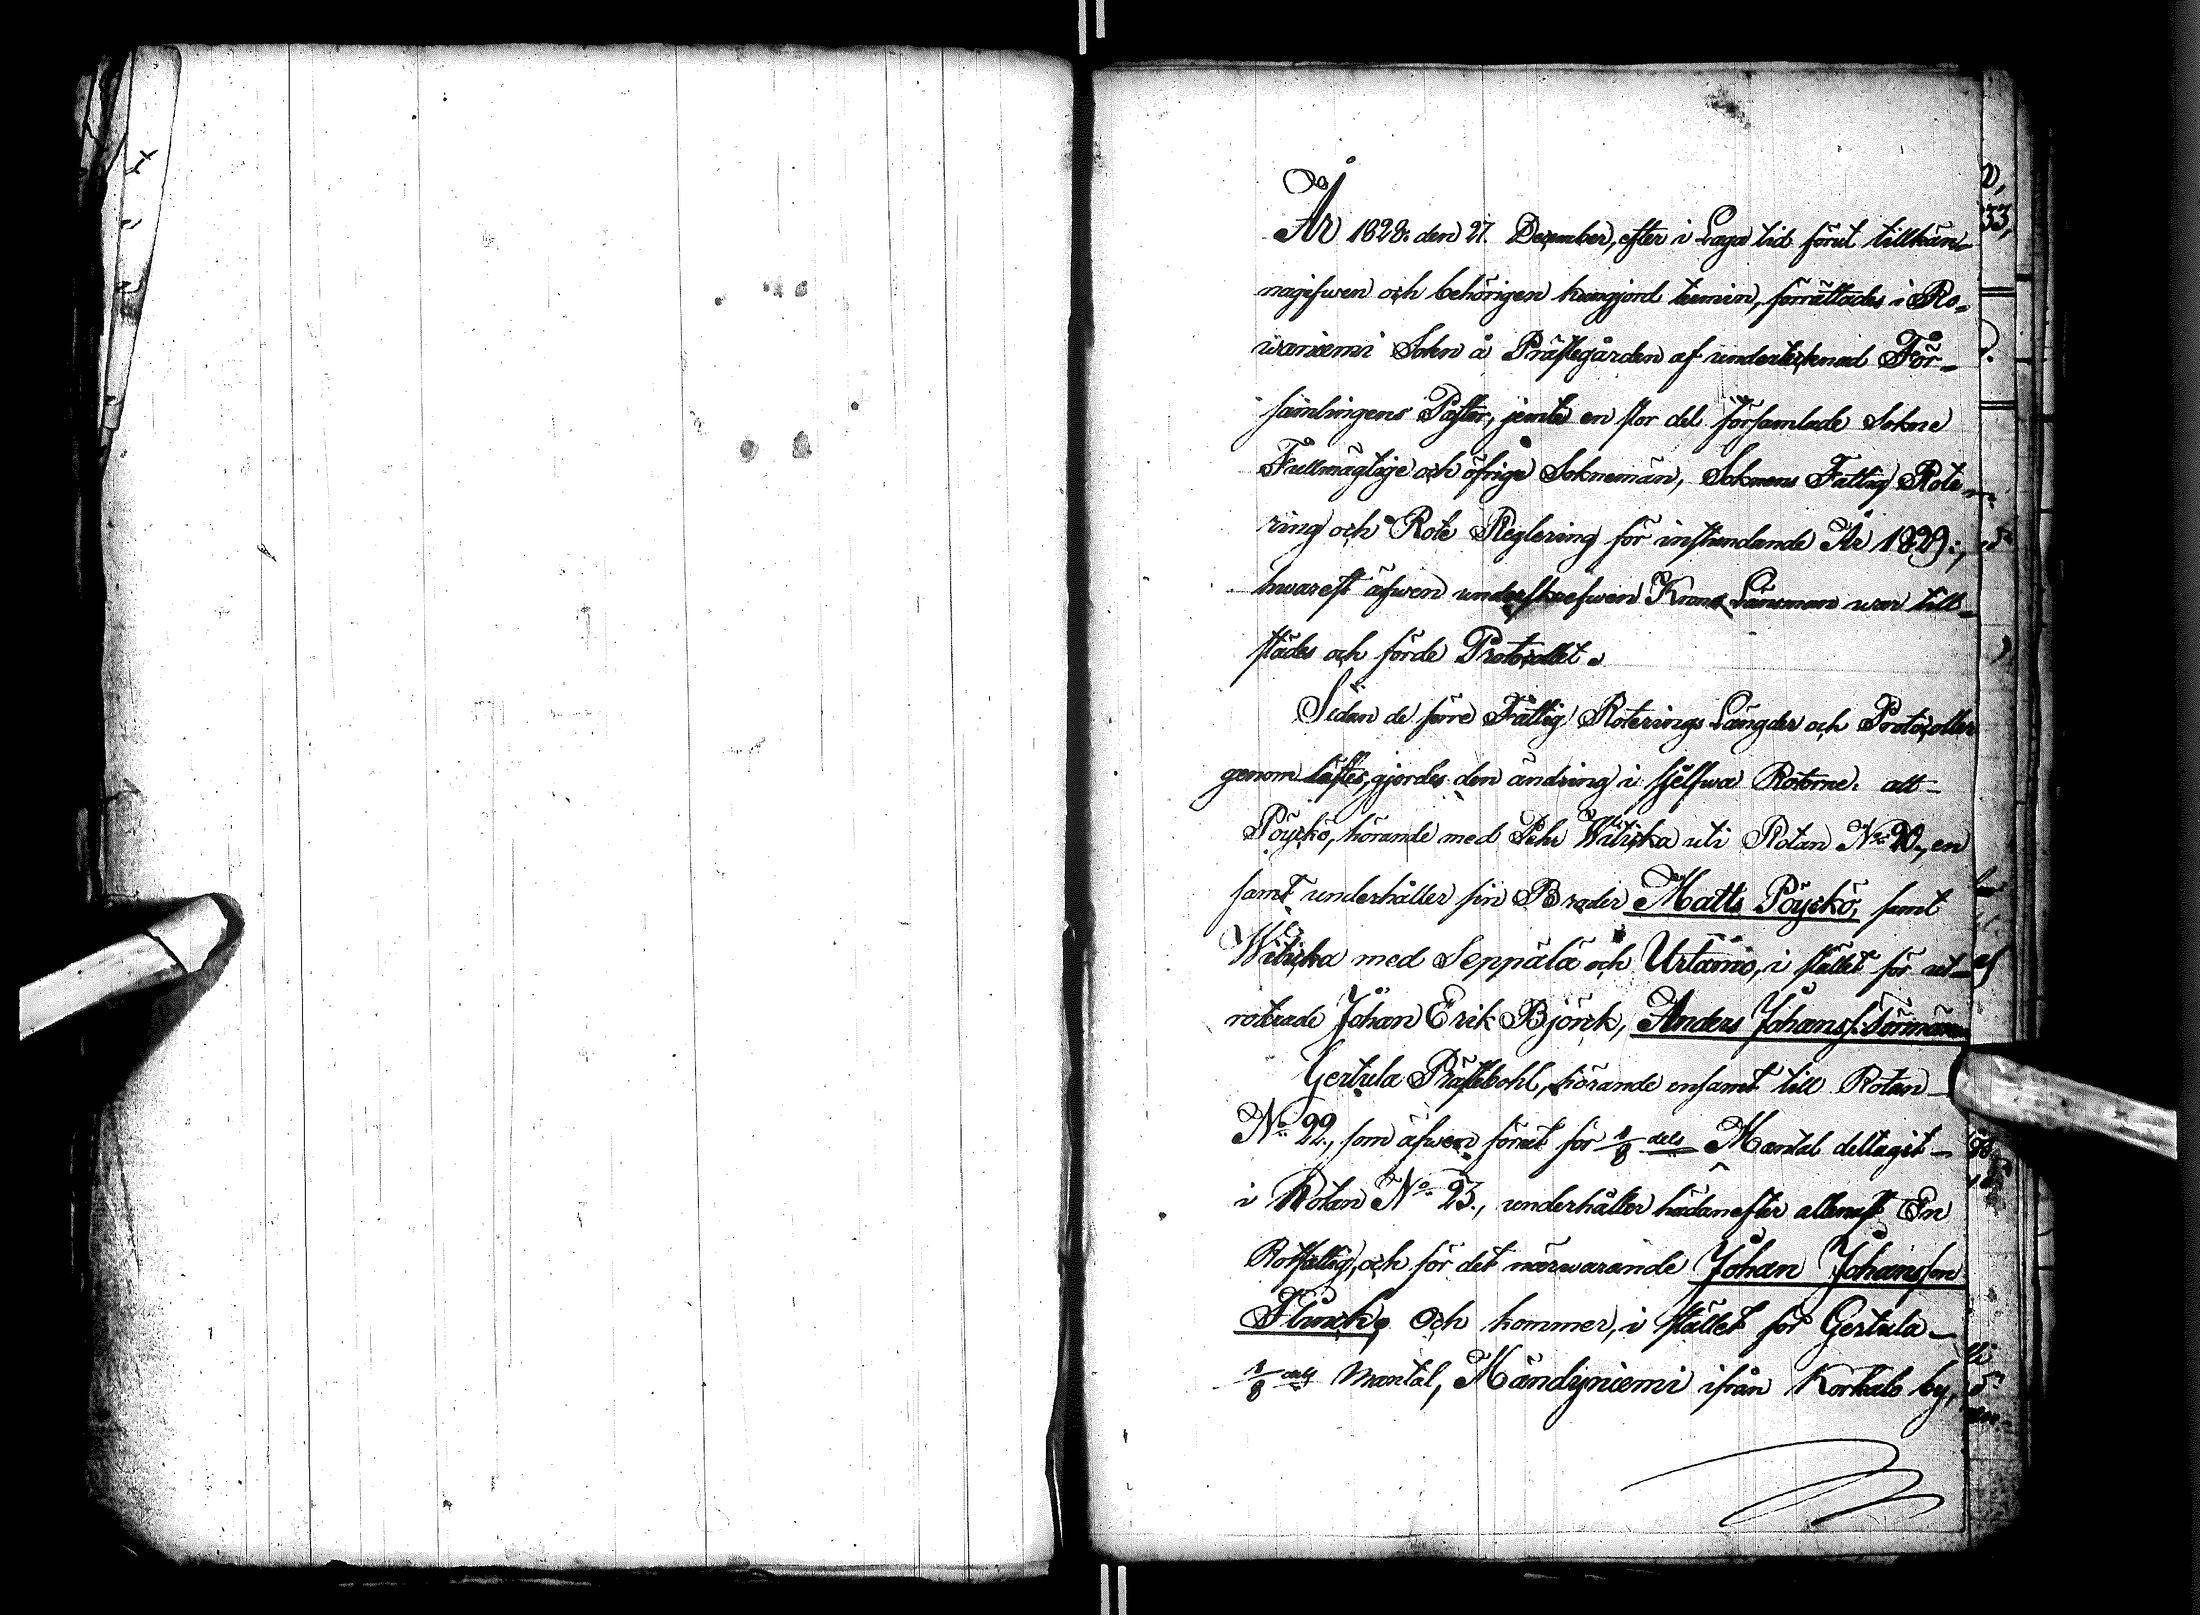 År 1828. den 27. December, efter i Laga tid förut tillkän-
nagifwen och behörigen kungjord termin, förrättades i Ro-
waniemi Sokn å Prästegården af undertecknad För-
samlingens Pastor, jemte en stor del församlade Sokne
Fullmägtige och öfrige Soknemän, Soknens Fattig Rote-
ring och Rote Reglering för instundande År 1829:,
hwarest äfwen underskrefwen Krono Länsman war till-
städes och förde Protocollet.
Sedan de förre Fattig Roterings Längder och Protocoller
genom lästes, gjordes den ändring i sjelfwa Rotorne. att
Pöyckö, hörande med Pehr Wiricka uti Rotan No 20., en
samt underhåller sin Broder Matts Pöyckö, samt
Wiricka med Seppälä och Urtamo, i stället för ut-
roterade Johan Erik Björck, Anders Johanss. Sormunen
Gertula Prästebohl, hörande ensamt till Rotan
No 22., som äfwen förut för 1/8 dels Mantal deltagit
i Rotan No 23., underhåller hädanefter allenast En
Rotfattig, och för det närwarande Johan Johansson
Flinck. Och kommer, i stället för Gertula
1/8 dels Mantal, Mändyniemi ifrån Korkalo by,